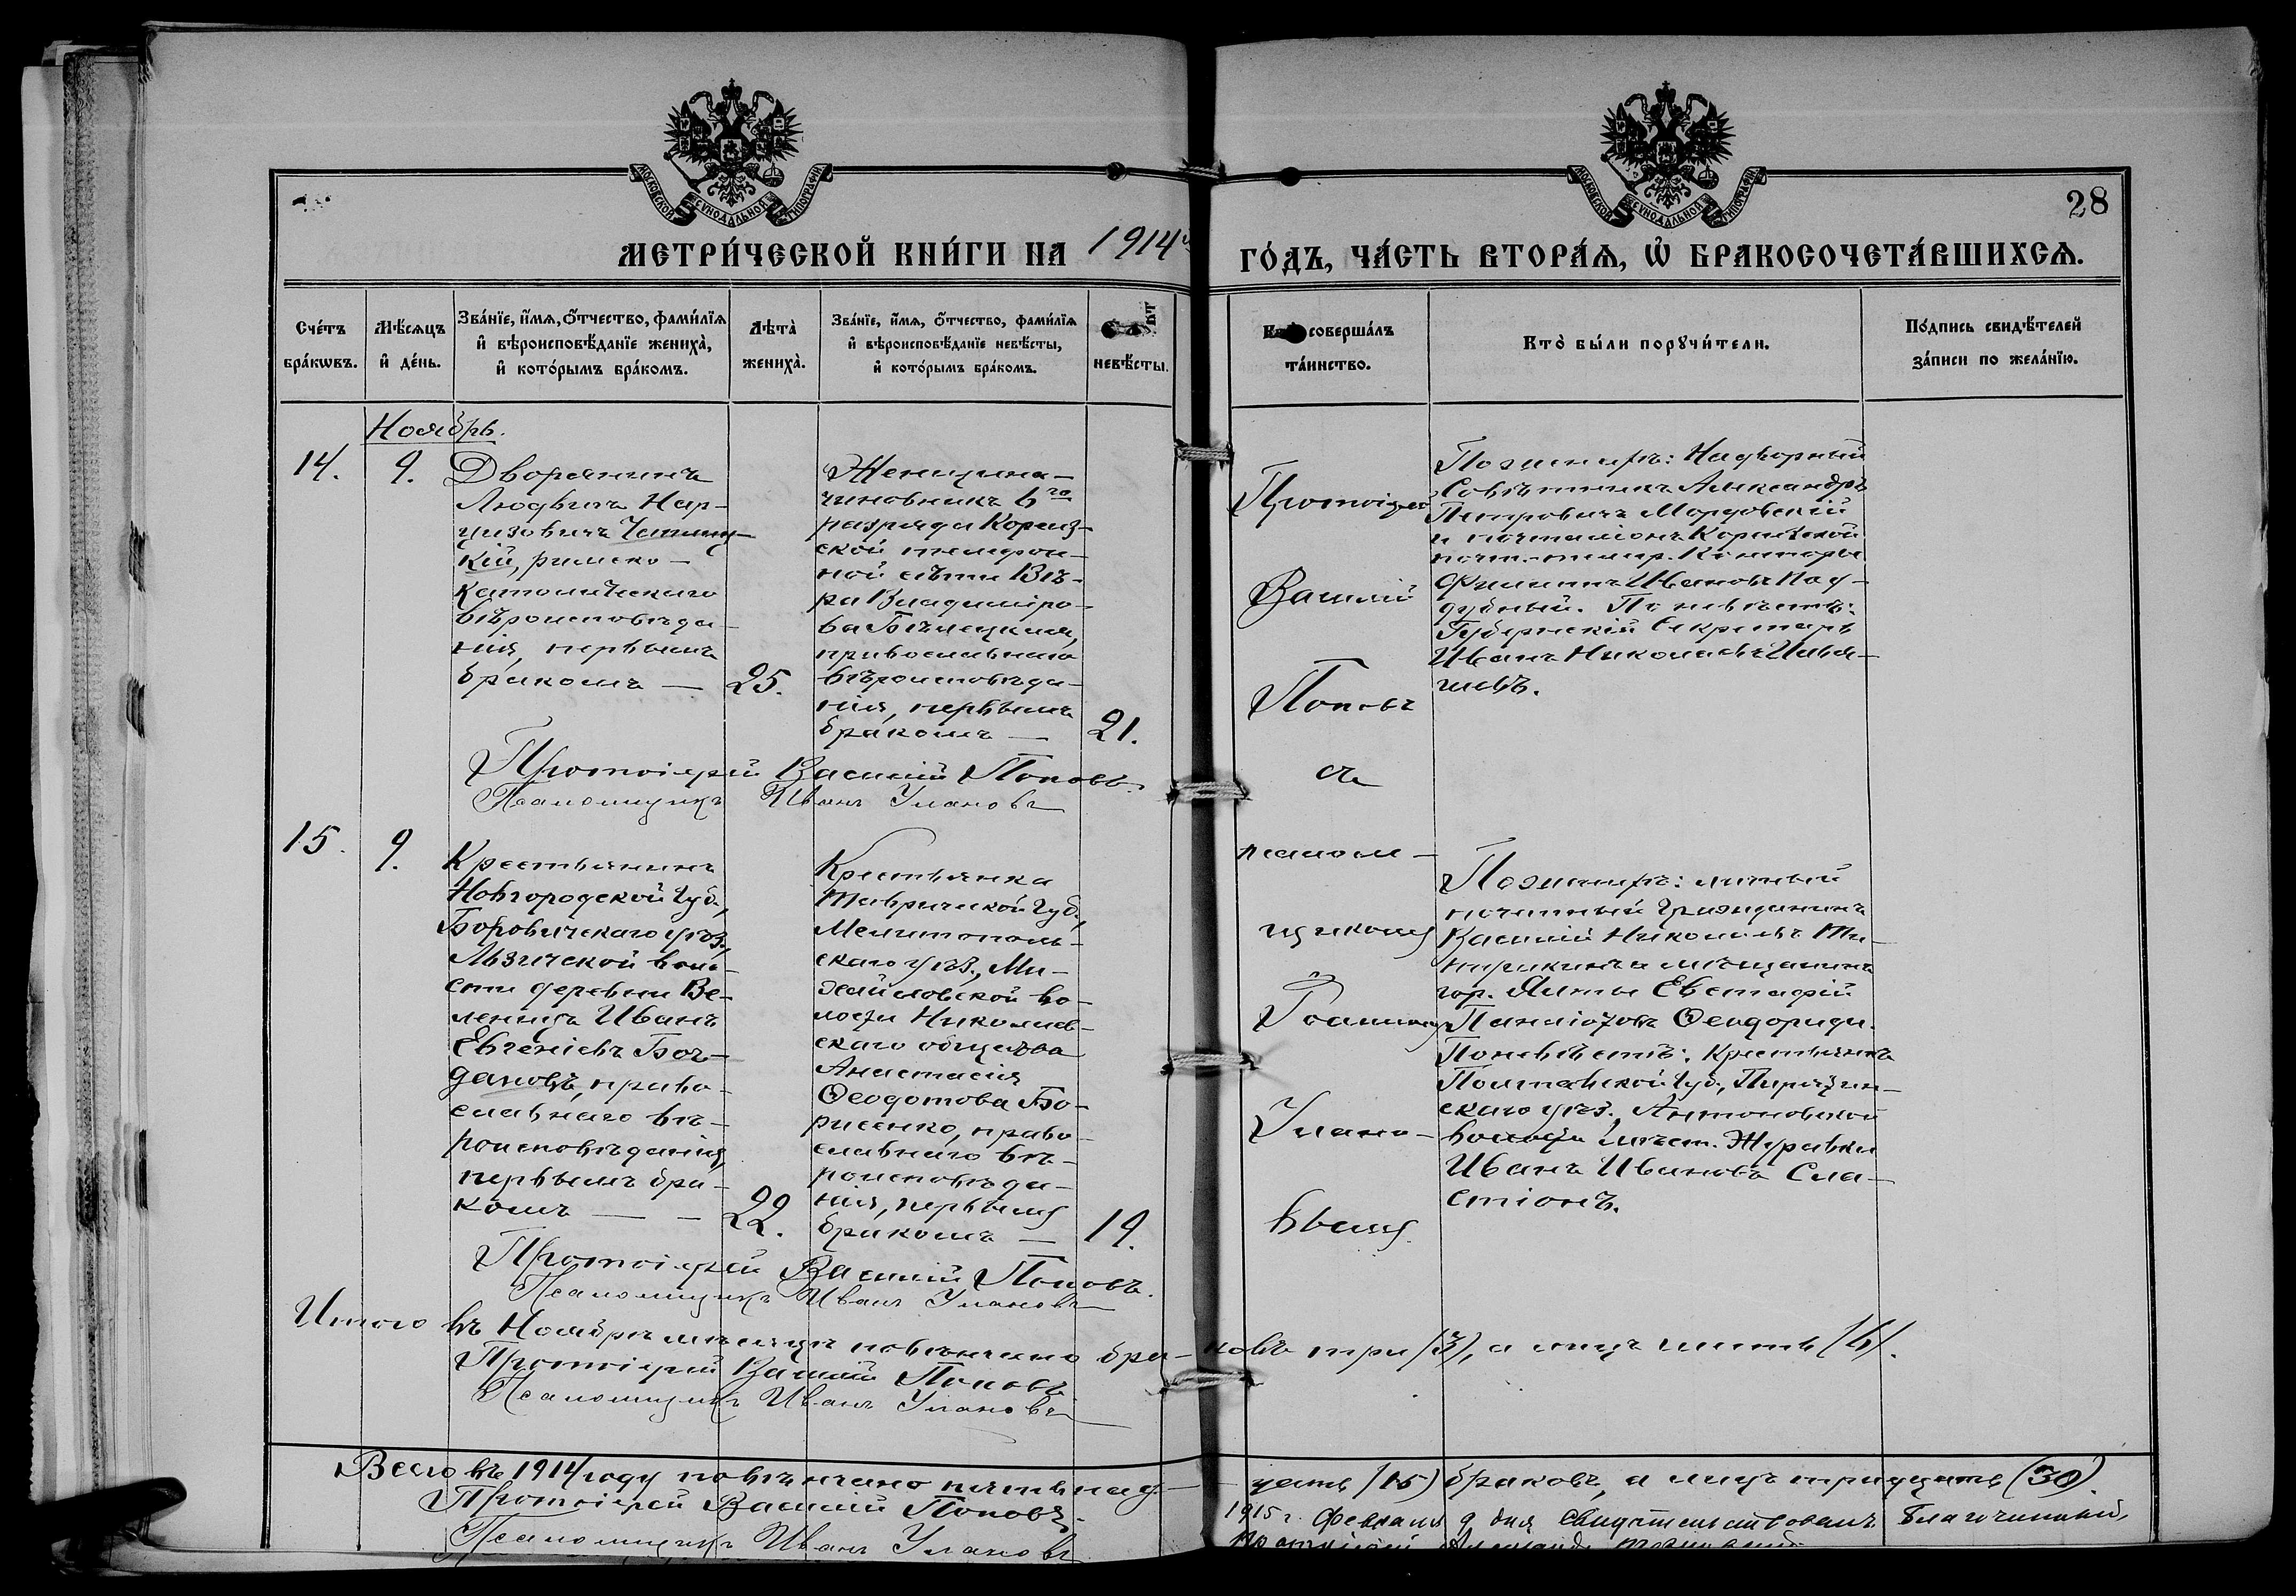 МОСКОВСКОЙ СѴНОДАЛЬНОЙ ТИПОГРАФІИ
МОСКОВСКОЙ СѴНОДАЛЬНОЙ ТИПОГРАФІИ
28
МЕТРИ́ЧЕСКОЙ КНИ́ГИ НА 1914й ГО́ДЪ, ЧА́СТЬ ВТОРА́Ѧ, Ѽ БРАКОСОЧЕТА́ВШИХСѦ.
Сче́тъ бра́кѡвъ.
Мѣ́сѧцъ и҆ де́нь.
Зва́нїе, и҆́мѧ, ѻ҆́тчество, фами́лїѧ и҆ вѣроисповѣ́данїе жениха̀, и҆ кото́рымъ бра́комъ.
Лѣта̀ жениха̀.
Зва́нїе, и҆́мѧ, ѻ҆́тчество, фами́лїѧ и҆ вѣроисповѣ́данїе невѣ́сты, и҆ кото́рымъ бра́комъ.
невѣ́сты.
совершáлъ та́инство.
Кто̀ бы́ли порꙋчи́тели.
По́дпись свидѣ́телей за́писи по жела́нїю.
Ноябрь.
14.
9.
Дворянинъ
Людвигъ Нар-
цизовичъ
кій, римско-
католическаго
вѣроисповѣда-
нія, первымъ
бракомъ — 25.
Женщина-
чиновникъ 6го
разряда Кореиз-
ской телефон-
ной сѣти Вѣ-
ра Владиміро-
ва Бѣлецкая,
православнаго
вѣроисповѣда-
нія, первымъ
бракомъ — 21.
Протоіерей Василій Поповъ.
Псаломщикъ Иванъ Улановъ
Протоіерей
Василій
Поповъ
съ
псалом-
щикомъ
Іоанномъ
Улано-
вымъ.
По женихѣ: Надворный
Совѣтникъ Александръ
Петровичъ Мордовскій
и почталіонъ Кореизской
почт.-телегр. Конторы
Филиппъ Ивановъ Под-
дубный. По невѣстѣ:
Губернскій Секретарь
Иванъ Николаевъ Ива-
15.
9.
Крестьянинъ
Новгородской губ.,
Боровичскаго уѣз.,
воло-
сти деревни Ве-
Иванъ
Евгеніевъ Бог-
дановъ, право-
славнаго вѣ-
роисповѣданія,
первымъ бра-
комъ — — 22.
Крестьянка
Таврической губ.,
Мелитополь-
скаго уѣз., Ми-
хайловской во-
лости Николаев-
скаго общества
Анастасія
Ѳеодотова Бо-
рисенко, право-
славнаго вѣ-
роисповѣда-
нія, первымъ
бракомъ — 19.
По женихѣ: личный
почетный гражданинъ
Василій Николаевъ
и мѣщанинъ
гор. Ялты Евстафій
Панаіотовъ Ѳеодориди.
По невѣстѣ: крестьянинъ
Полтавской губ., Пирятин-
скаго уѣз., Антоновской
волости мѣст. Журавки
Иванъ Ивановъ Сла-
стіонъ.
Протоіерей Василій Поповъ.
Псаломщикъ Иванъ Улановъ
Итого въ Ноябрѣ мѣсяцѣ повѣнчано бра-ковъ три (3), а лицъ шесть (6).
Протоіерей Василій Поповъ.
Псаломщикъ Иванъ Улановъ
Всего въ 1914 году повѣнчано пятьнад-цать (15) браковъ, а лицъ тридцать (30).
Протоіерей Василій Поповъ.
Псаломщикъ Иванъ Улановъ
1915 г. Февраля 9 дня свидѣтельствовалъ Благочинный,